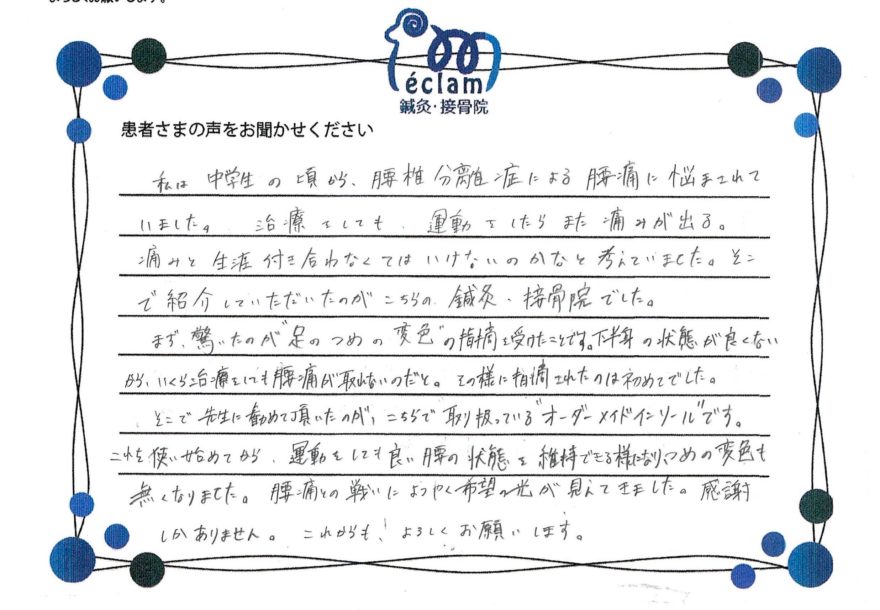 よろしくお願いします。
éclam
鍼灸・接骨院
患者さまの声をお聞かせください
私は中学生の頃から、腰椎分離症による腰痛に悩まされて
いました。治療をしても、運動をしたらまた痛みが出る。
痛みと生涯付き合わなくてはいけないのかなと考えていました。そこ
で紹介していただいたのがこちらの、鍼灸・接骨院でした。
まず、驚いたのが"足のつめの変色"の指摘を受けたことです。下半身の状態が良くない
から、いくら治療をしても腰痛が取れないのだと。その様に指摘されたのは初めてでした。
そこで先生に勧めて頂いたのが、こちらで取り扱っている"オーダーメイドインソール"です。
これを使い始めてから、運動をしても良い腰の状態を維持できる様になり、つめの変色も
無くなりました。腰痛との戦いにようやく希望の光が見えてきました。感謝
しかありません。これからも、よろしくお願いします。